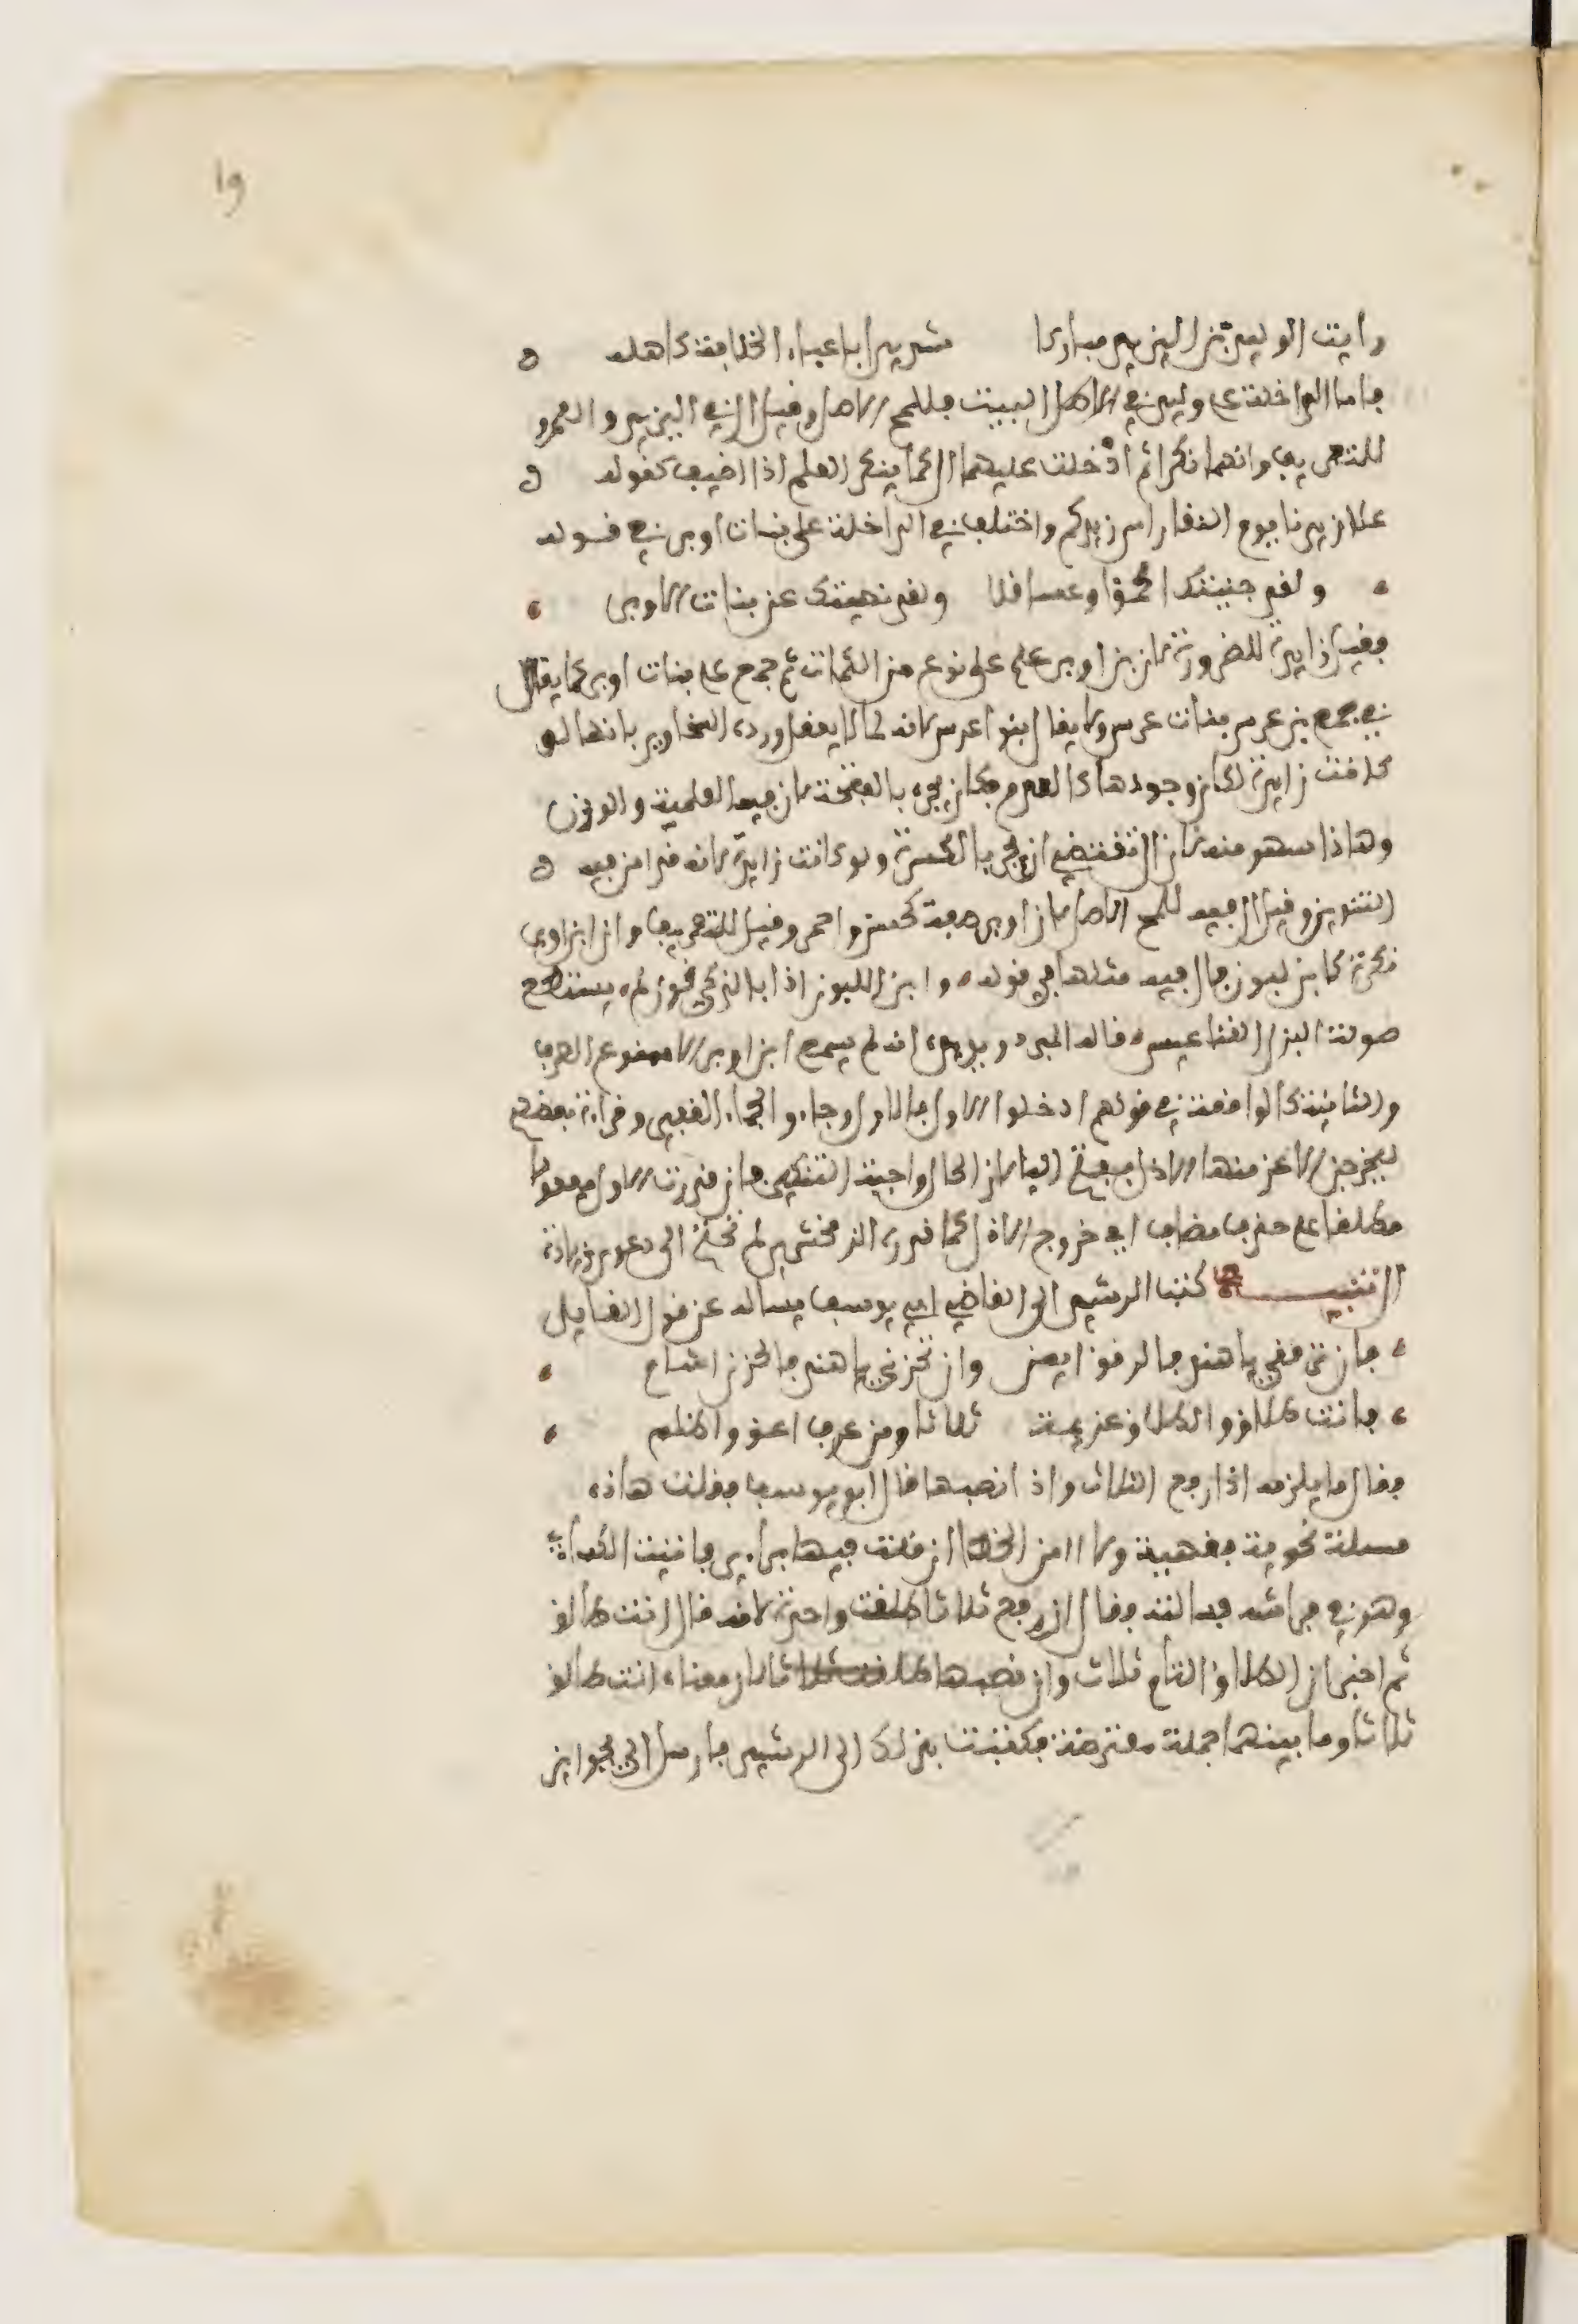 19
رايت الوليد بن اليزيد مباركا شديدا باعباء الخلافة كاهله
فاما الداخلة على وليد في الاصل البيت فللمح الاصل وقيل ال في اليزيد والعمرو
للتعريف وانهما نكرا ثم ادخلت عليهما ال كما ينكر العلم اذا اضيف كقوله
علا زيدنا يوم النقا راس زيدكم واختلف في الداخلة على بنات اوبر في قوله
ولقد جنيتك اكمؤا وعساقلا ولقد نهيتك عن بنات الاوبر
فقيل زايدة للضرورة لان بن اوبر علم على نوع من الكمات ثم جمع على بنات اوبر كما يقال
في جمع بن عرس بنات عرس ولا يقال بنوا عرس لانه لما لا يعقل ورده السخاوي بانها لو
كانت زايدة لكان وجودها كالعدم فكان يجره بالفتحة لان فيه العلمية والوزن
وهاذا سهو منه لان ال تقتضي ان يجر بالكسرة ولو كانت زايدة لانه قد امن فيه
التنوين وقيل ال فيه للمح الاصل لان اوبر صفة كحسن واحمر وقيل للتعريف وان ابن اوبر
نكرة كابن لبون فال فيه مثلها في قوله وابن اللبون اذا ما لز في قرن لم يستطع
صولة البزل القناعيس قاله المبرد ويرده انه لم يسمع ابن اوبر الا ممنوع الصرف
والثانية كالواقعة في قولهم ادخلوا الاول فالاول وجاءوا الجماء الغفير وقراءة بعضهم
ليخرجن الاعز منها الاذل بفتح اليا لان الحال واجبة التنكير فان قدرت الاول مفعولا
مطلقا على حذف مضاف اي خروج الاذل كما قدره الزمخشري لم تحتج الى دعوى زيادة
ال تنبيه كتب الرشيد الى القاضي ابي يوسف يساله عن قول القايل
فان ترفقي يا هند فالرفق ايمن وان تخرقي يا هند فالخرق اشام
فانت طلاق والطلاق عزيمة ثلاثا ومن يخرق اعق واظلم
فقال ما يلزمه اذا رفع الثلاث واذا نصبها قال ابو يوسف فقلت هاذه
مسئلة نحوية فقهية ولا اامن الخطا ان قلت فيها براءيي فاتيت الكساءي
وهو في فراشه فسالته فقال ان رفع ثلاثا طلقت واحدة لانه قال انت طالق
ثم اخبر ان الطلاق التام ثلاث وان نصبها طلقت ثلاثا لان معناه انت طالق
ثلاثا وما بينهما جملة معترضة فكتبت بذلك الى الرشيد فارسل الي بجوايز